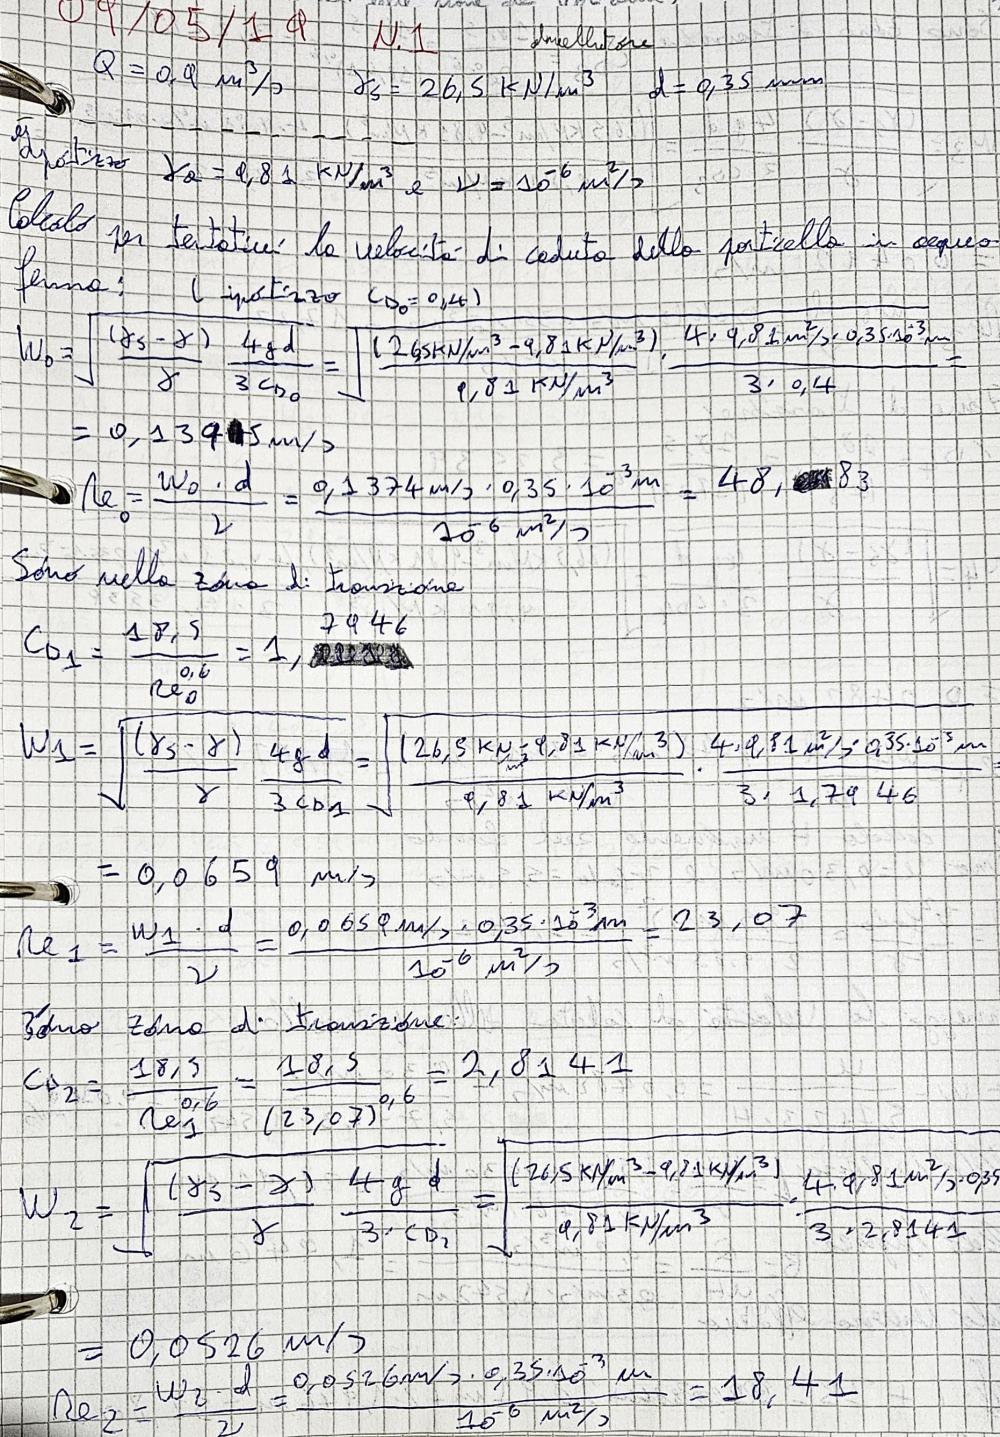 09/05/19 N.1 dissabbiatore
Q = 0,9 m³/s γs = 26,5 KN/m³ d = 0,35 mm
Ipotizzo γa = 9,81 KN/m³ e ν = 10⁻⁶ m²/s
Calcolo per tentativi la velocità di caduta della particella in acqua
ferma: (ipotizzo CD₀ = 0,4)
W₀ = √((γs - γ)/γ · 4gd/(3CD₀)) = √((26,5KN/m³ - 9,81KN/m³)/(9,81 KN/m³) · (4·9,81m²/s·0,35·10⁻³m)/(3·0,4)) =
= 0,1395 m/s
Re₀ = (W₀·d)/ν = (0,1374 m/s·0,35·10⁻³m)/(10⁻⁶ m²/s) = 48,83
Sono nella zona di transizione
CD1 = 18,5/Re₀^0,6 = 1,7946
W1 = √((γs - γ)/γ · 4gd/(3CD1)) = √((26,5 KN/m³ - 9,81 KN/m³)/(9,81 KN/m³) · (4·9,81 m²/s·0,35·10⁻³m)/(3·1,7946)) =
= 0,0659 m/s
Re1 = (W1·d)/ν = (0,0659m/s·0,35·10⁻³m)/(10⁻⁶ m²/s) = 23,07
Sono zona di transizione:
CD2 = 18,5/Re1^0,6 = 18,5/(23,07)^0,6 = 2,8141
W2 = √((γs - γ)/γ · 4gd/(3·CD2)) = √((26,5KN/m³ - 9,81KN/m³)/(9,81 KN/m³) · (4·9,81m²/s·0,35)/(3·2,8141))
= 0,0526 m/s
Re2 = (W2·d)/ν = (0,0526m/s·0,35·10⁻³ m)/(10⁻⁶ m²/s) = 18,41